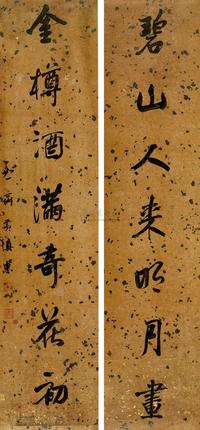 碧山人来明月画
金樽酒满奇花初